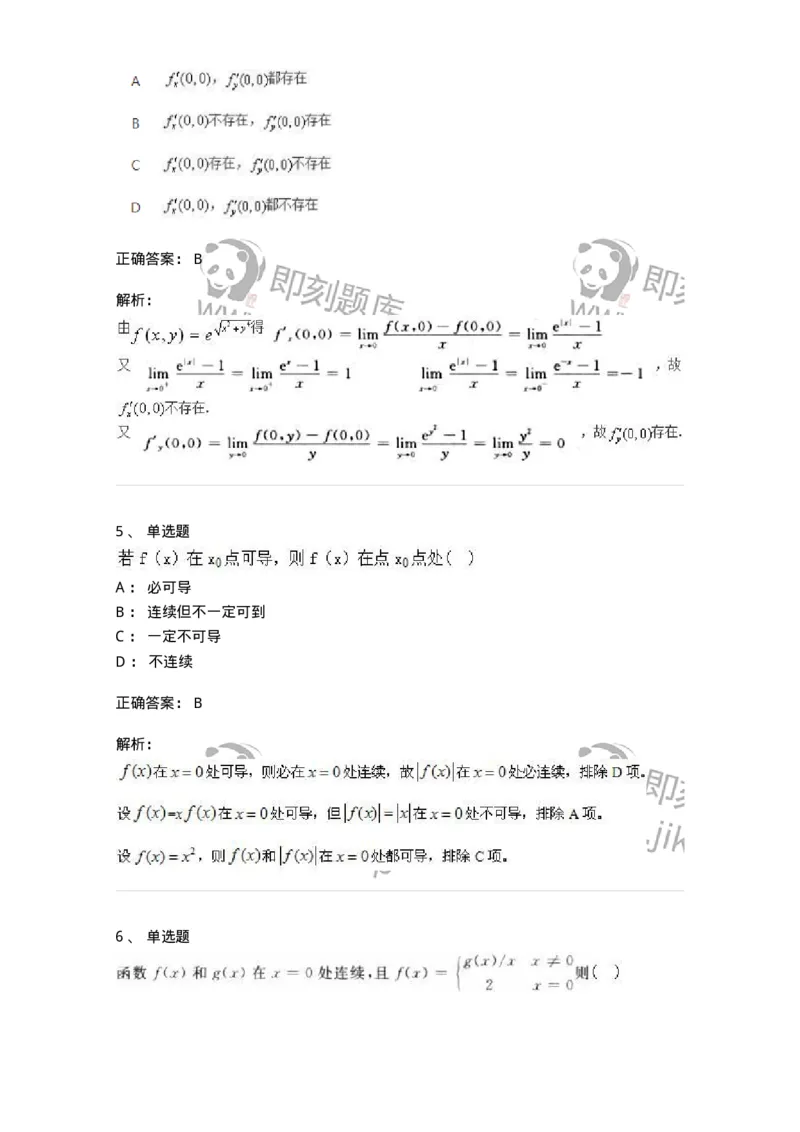 A f′ₓ(0,0)，f′ᵧ(0,0)都存在
B f′ₓ(0,0)不存在，f′ᵧ(0,0)存在
C f′ₓ(0,0)存在，f′ᵧ(0,0)不存在
D f′ₓ(0,0)，f′ᵧ(0,0)都不存在
正确答案： B
解析：
由f(x,y) = e^{√(x²+y⁴)}得 f′ₓ(0,0) = lim_{x→0} (f(x,0)−f(0,0))/x = lim_{x→0} (e^{|x|}−1)/x
又 lim_{x→0⁺} (e^{|x|}−1)/x = lim_{x→0⁺} (eˣ−1)/x = 1 lim_{x→0⁻} (e^{|x|}−1)/x = lim_{x→0⁻} (e^{−x}−1)/x =−1 ，故
f′ₓ(0,0)不存在.
又 f′ᵧ(0,0) = lim_{y→0} (f(0,y)−f(0,0))/y = lim_{y→0} (e^{y²}−1)/y = lim_{y→0} y²/y = 0 ，故f′ᵧ(0,0)存在.
5 、 单选题
若 f（x）在 x₀点可导，则 f（x）在点 x₀点处( )
A ： 必可导
B ： 连续但不一定可到
C ： 一定不可导
D ： 不连续
正确答案： B
解析：
f(x)在 x = 0处可导，则必在 x = 0处连续，故|f(x)|在 x = 0处必连续，排除 D 项。
设 f(x)=x f(x)在 x = 0处可导，但|f(x)| = |x|在 x = 0处不可导，排除 A 项。
设 f(x) = x²，则 f(x)和|f(x)|在 x = 0处都可导，排除 C 项。
6 、 单选题
函数 f(x) 和 g(x) 在 x = 0 处连续,且 f(x) = { g(x)/x x ≠ 0
2 x = 0 则( )
即刻题库